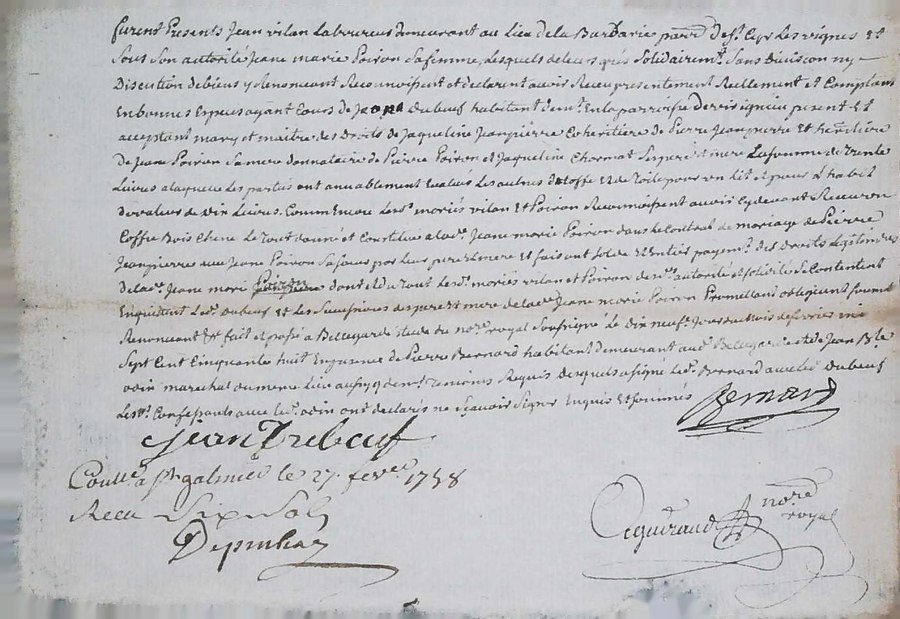 furent Presents Jean vilan Laboureur demeurant au Lieu dela Barbarie parr.e De St. Cyr Les vignes et
Sous Son autorité Jeane marie Poiron Sa femme, Lesquels deleurs grés Solidairemt. Sans Division ny
Discution de biens y Renonceant Reconnoissent et declarent avoir Receu presentement Reellement et Comptant
En bonnes Especes ayant Cours de Jean Dubeuf habitant de la parroisse De present Et
acceptant mary et maitre des Droits de Jaqueline Jeanpierre Coheritiere de Pierre Jeanpierre Et heritiere
De Jeane Poiron Sa mere donnataire de Pierre Poiron et Jaqueline Charmat Ses pere et mere La somme de Trente
Livres a laquelle Les parties ont amiablement Evalués Les autres Detoffe Et de Toile pour un Lit et pour L'habit
de valeur de Dix Livres. Comme En outre Lesds. mariés vilan Et Poiron Reconnoissent avoir Cydevant Receu un
Coffre Bois Chene Le Tout donné et Constitué a lad. Jeane marie Poiron dans le Contrat de mariage de Pierre
Jeanpierre avec Jeane Poiron Sa soeur par Leur pere et mere Et faisant Solde Et Entier payemt. Des Droits Legitimaires
De lad. Jeane marie Poiron dont et du Tout Lesds. mariés vilan et Poiron de ds. autorité et Solidité Se Contentent
En quittent Led. Dubeuf Et Les Successions des pere et mere de lad. Jeane marie Poiron Promettant obligeant Soumet
Renonceant &c fait et passé a Bellegarde Etude du nore. royal Soussigné Le Dix neufe. Jour du mois de fevrier mil
Sept Cent Cinquante huit En presence de Pierre Bernard habitant demeurant aud. Bellegarde et de Jean Bte.
odin marechal du meme Lieu Temoins Requis Desquels a signé Led. Bernard avec Led. Dubeuf
Lesds. Confessants avec led. odin ont declarés ne Sçavoir Signer Enquis Et Sommés
Bernard
Jean Dubeuf
Coulle. a St. galmier le 27. fevrer 1758
Receu Six Sols
nore
royal